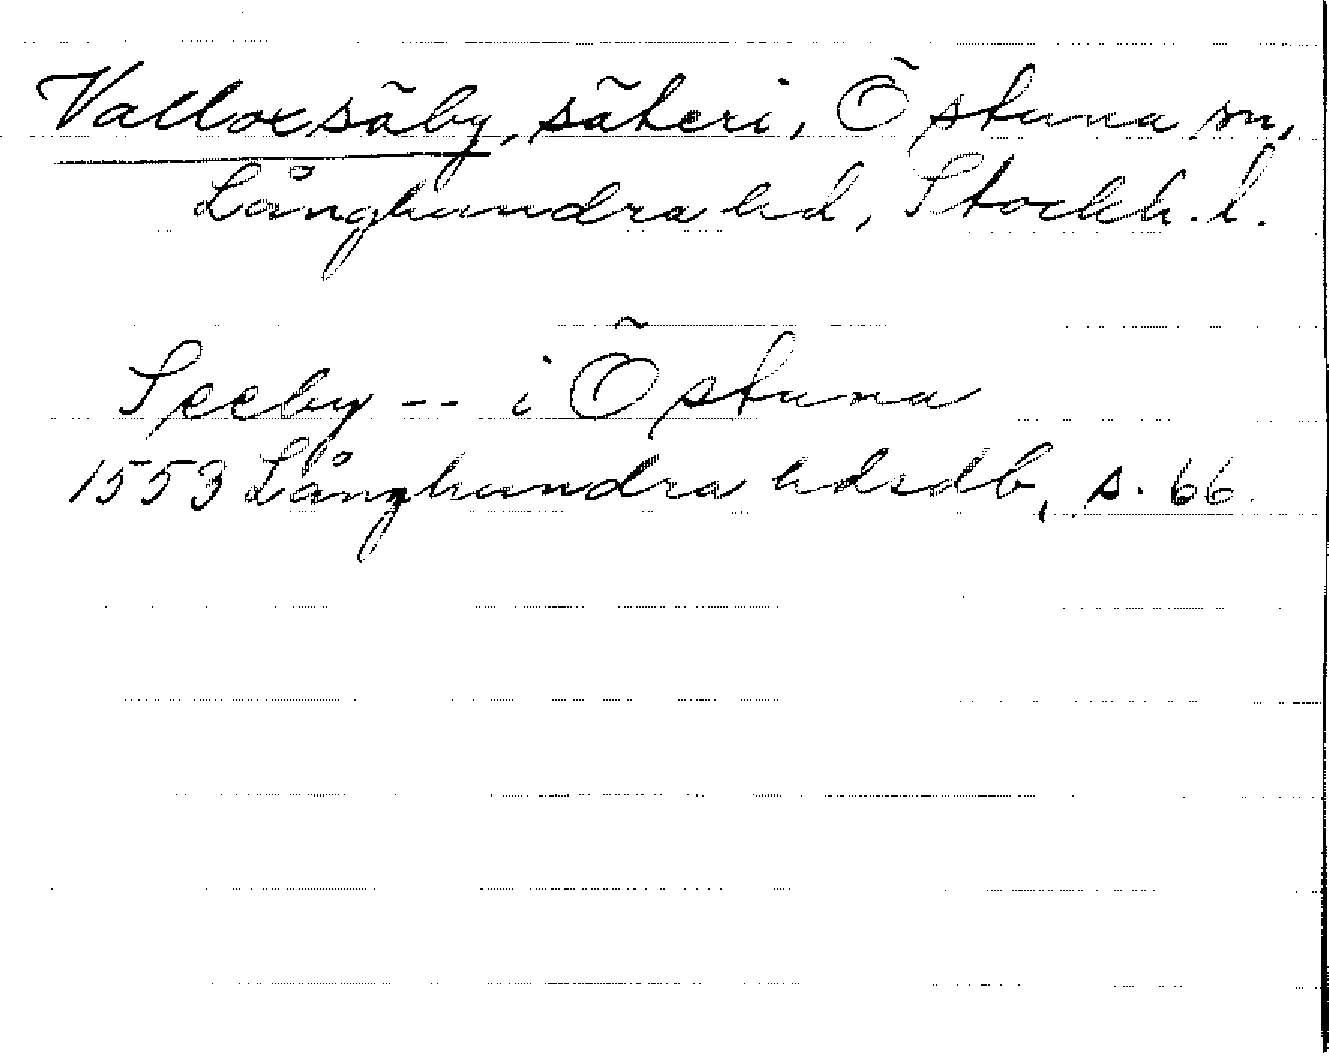 Valloxsäby, säteri, Östuna sn,
Långhundra hd, Stockh. l.
Seeby -- i Östuna
1553 Långhundra hdsdb, s. 66.